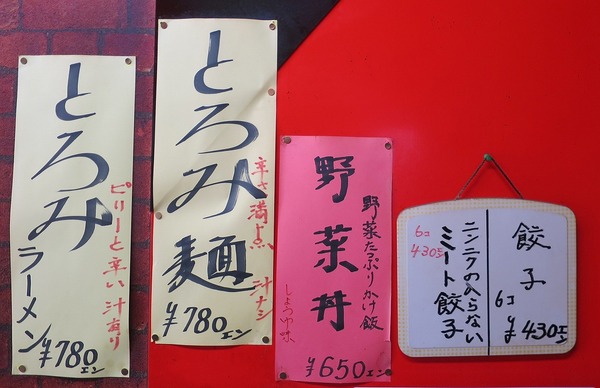 とろみラーメン
ピリーと辛い 汁有り
¥780エン
とろみ麺
辛さ満点
汁ナシ
¥780エン
野菜丼
野菜たっぷりかけ飯
しょうゆ味
¥650エン
餃子
6コ
¥430エン
ニンニクの入らない
ミート餃子
6コ
430エン